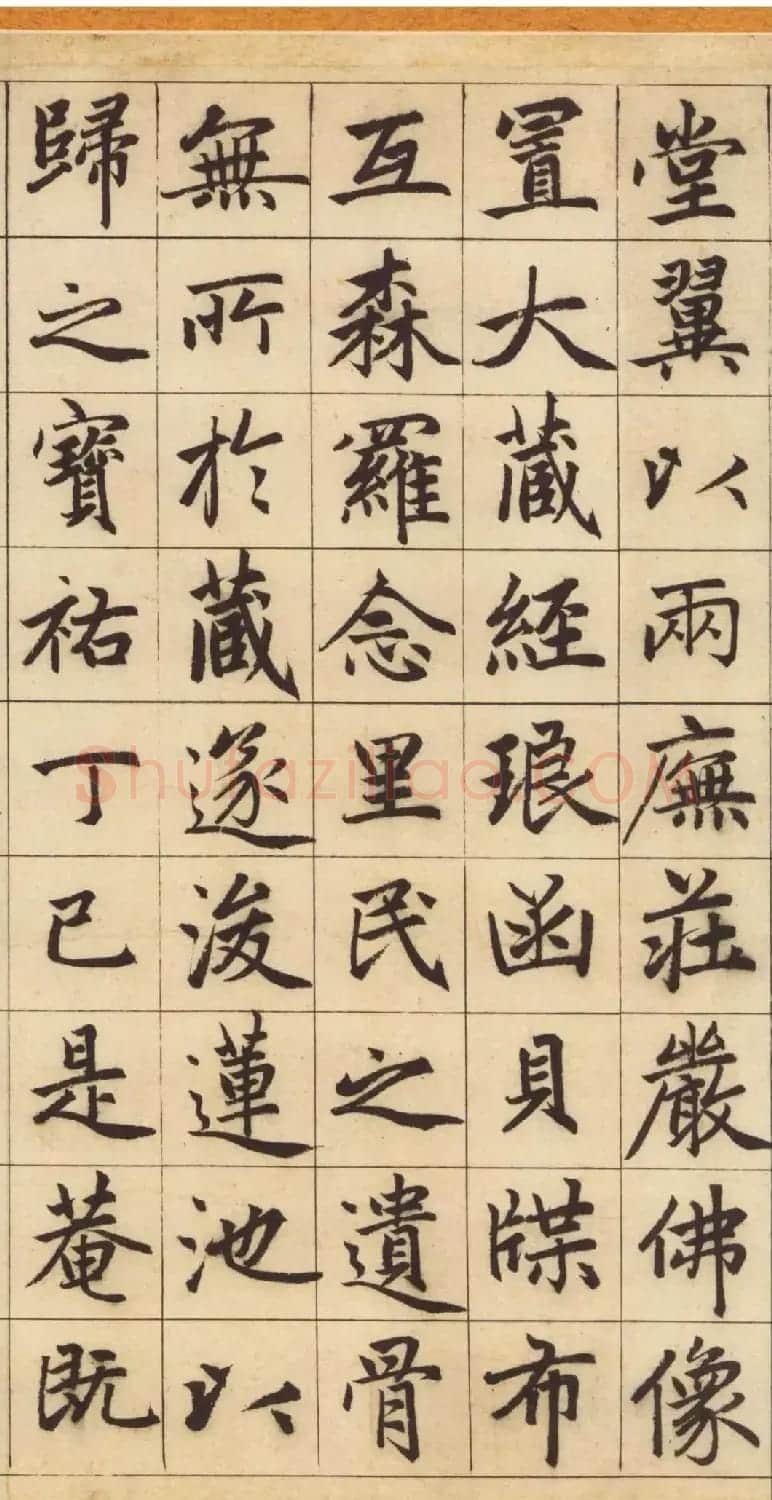 堂翼以兩廡莊嚴佛像
置大藏經琅函貝牒布
互森羅念里民之遺骨
無所於藏遂浚蓮池以
歸之寶祐丁巳是菴既
Shufaziliao.COM